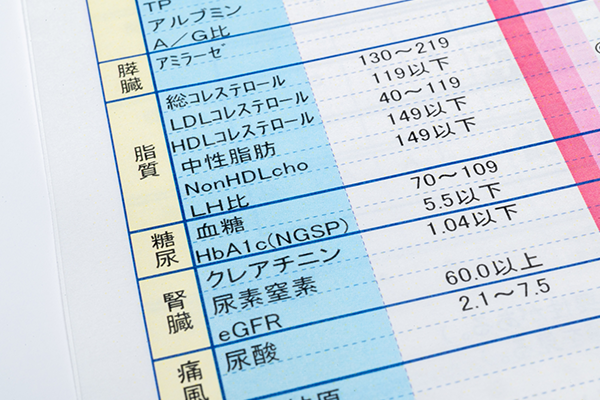 TP
アルブミン
A/G比
膵臓
アミラーゼ
脂質
総コレステロール 130～219
LDLコレステロール 119以下
HDLコレステロール 40～119
中性脂肪 149以下
NonHDLcho 149以下
LH比
糖尿
血糖 70～109
HbA1c(NGSP) 5.5以下
腎臓
クレアチニン 1.04以下
尿素窒素
eGFR 60.0以上
痛風
尿酸 2.1～7.5